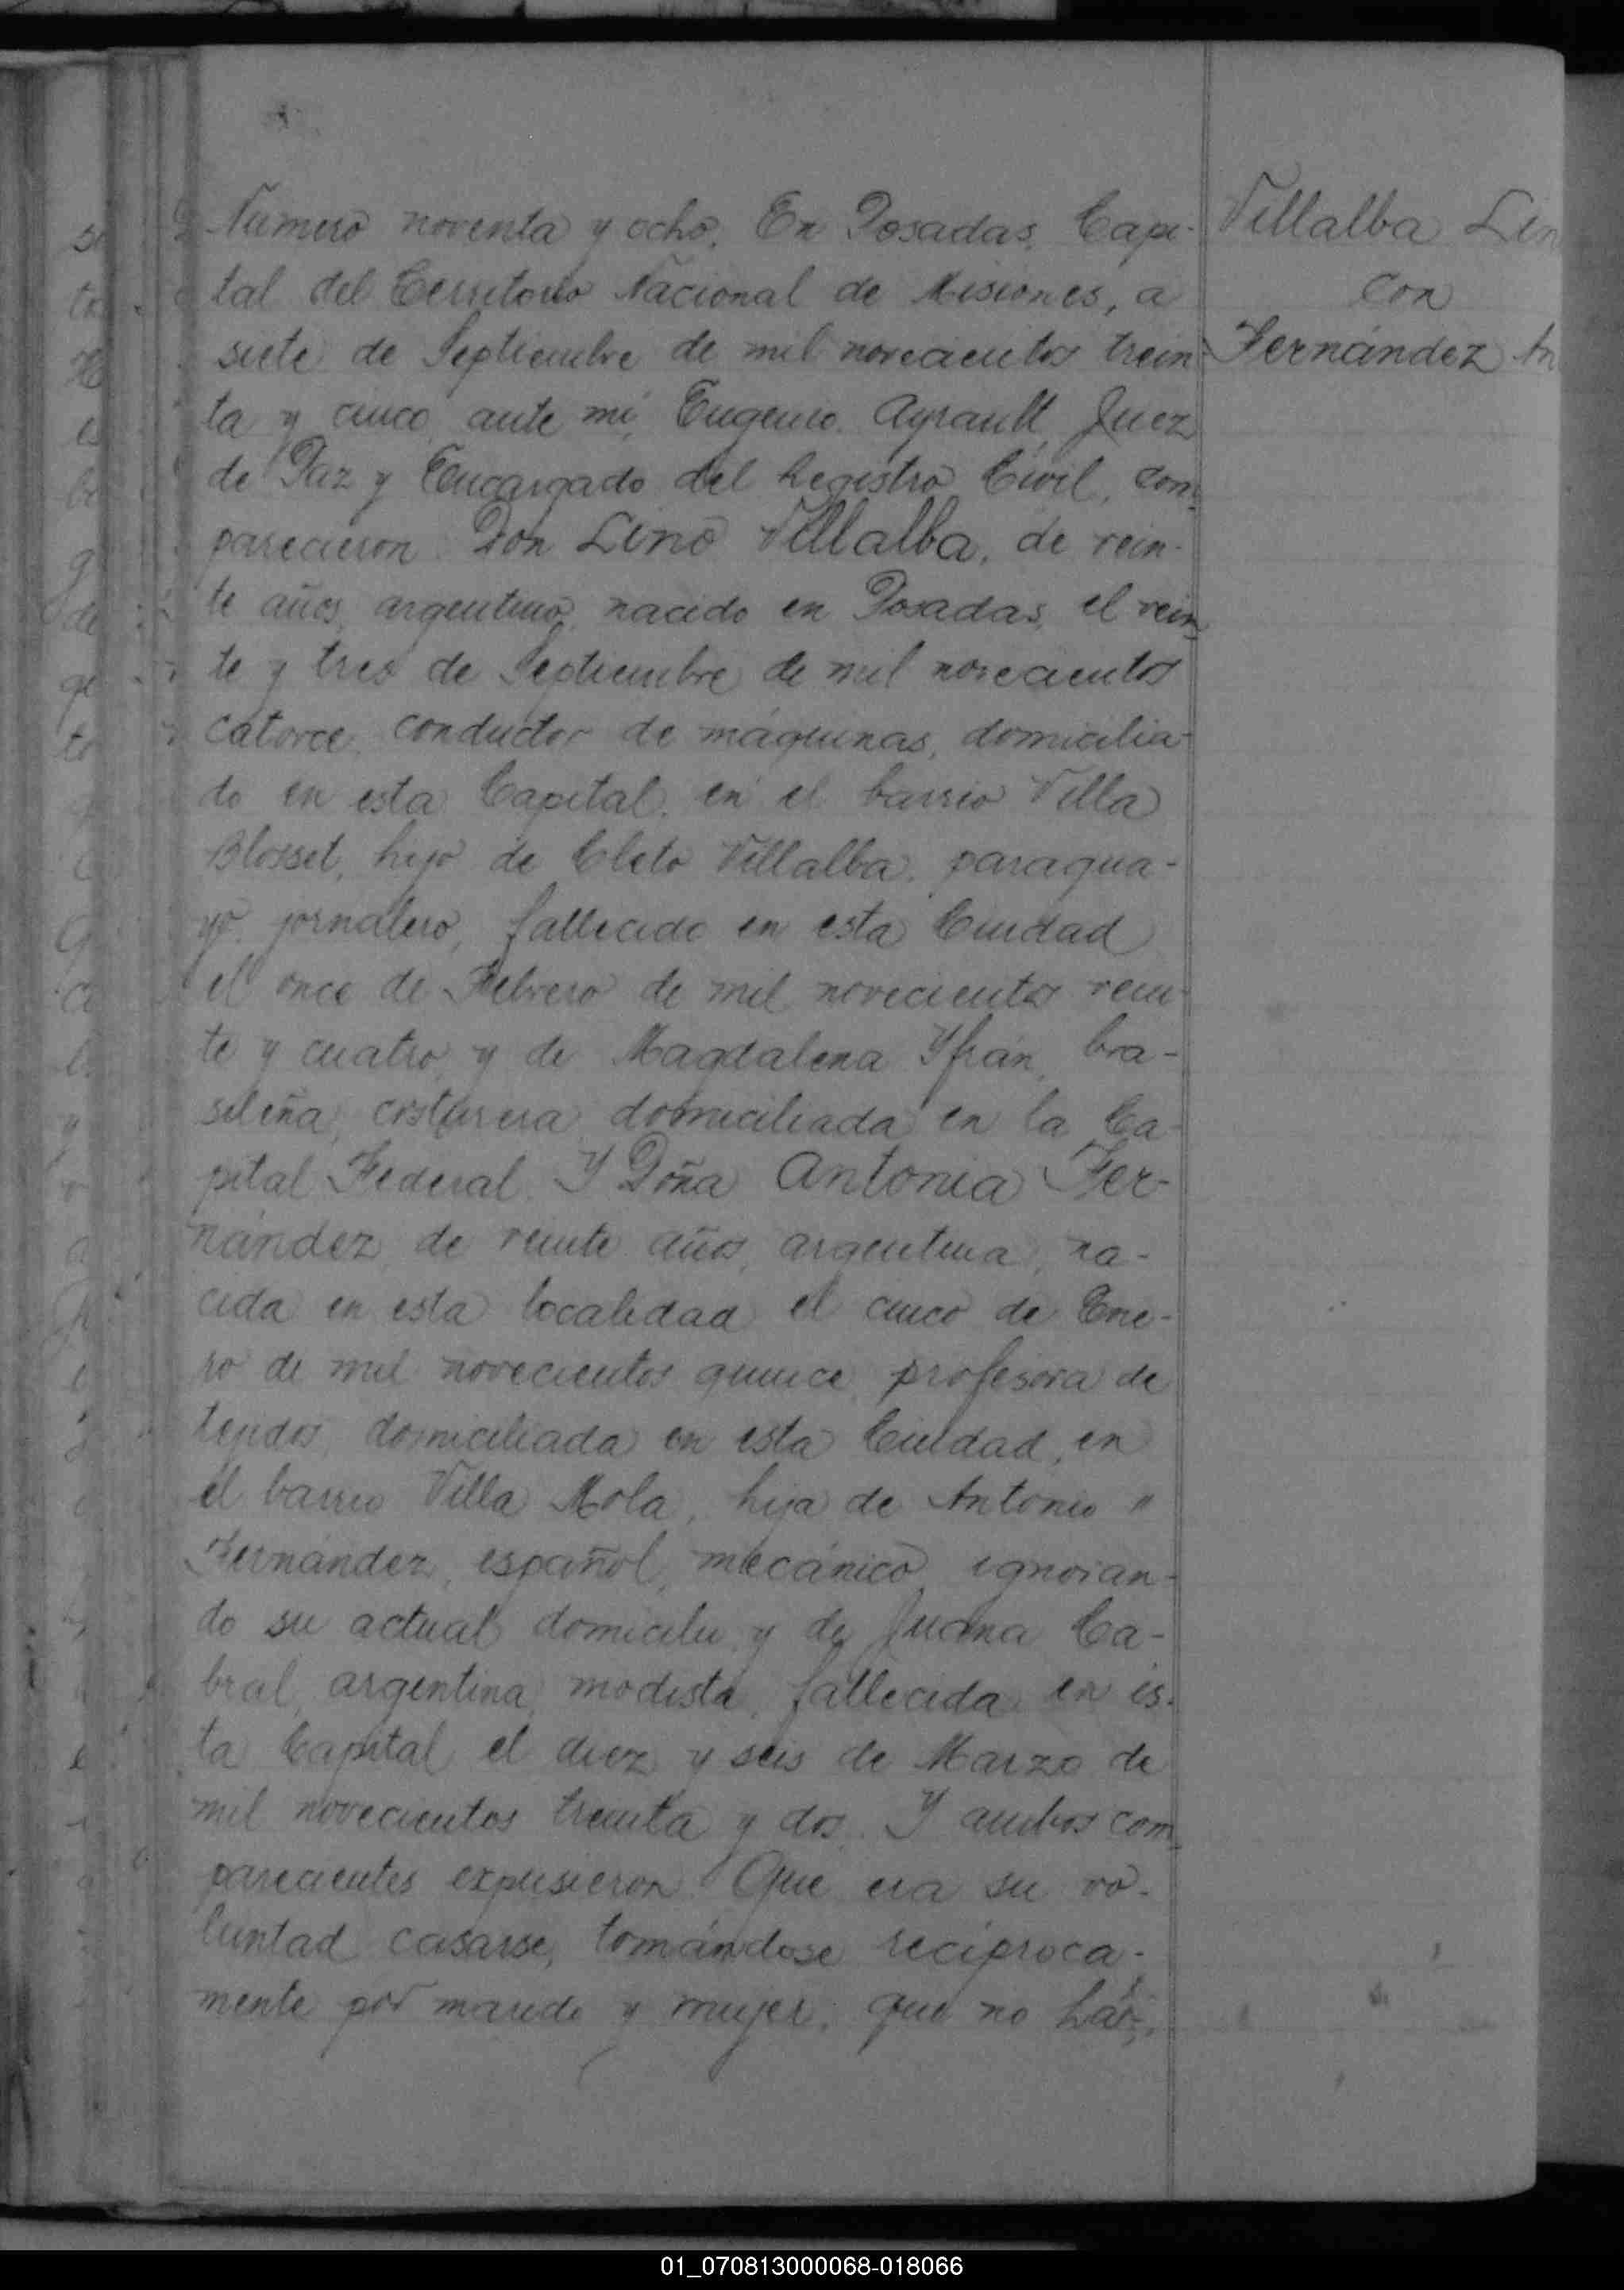 Número noventa y ocho. En Posadas, Capi-
tal del Territorio Nacional de Misiones, a
siete de Septiembre de mil novecientos trein
ta y cinco, ante mí, Eugenio Ayrault, Juez
de Paz y Encargado del Registro Civil, com-
parecieron: Don Lino Villalba, de vein-
te años, argentino, nacido en Posadas, el vein
te y tres de Septiembre de mil novecientos
catorce, conductor de máquinas, domicilia-
do en esta Capital, en el barrio Villa
Blosset, hijo de Cleto Villalba, paragua-
yo, jornalero, fallecido en esta Ciudad
el once de Febrero de mil novecientos vein-
te y cuatro, y de Magdalena Yfrán, bra-
sileña, costurera, domiciliada en la Ca-
pital Federal. Y Doña Antonia Fer-
nández, de veinte años, argentina, na-
cida en esta localidad el cinco de Ene-
ro de mil novecientos quince, profesora de
tejidos, domiciliada en esta Ciudad, en
el barrio Villa Mola, hija de Antonio "
Fernández, español, mecánico, ignoran-
do su actual domicilio y de Juana Ca-
bral, argentina, modista, fallecida en es-
ta Capital el diez y seis de Marzo de
mil novecientos treinta y dos. Y ambos com
parecientes expusieron: Que era su vo-
luntad casarse, tomándose recíproca-
mente por marido y mujer; que no
Villalba Lin
con
Fernández An
01_070813000068-018066